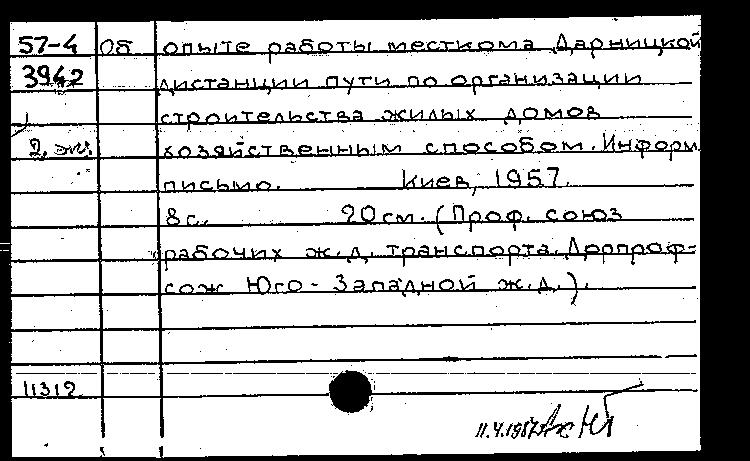 57-4 Об опыте работы месткома Дарницкой
3942 дистанции пути по организации
строительства жилых домов
2 экз. хозяйственным способом. Информ
письмо. Киев, 1957.
8с. 20см. (Проф. союз
рабочих ж.д. транспорта. Дорпроф-
сож Юго-Западной ж.д.).
11312